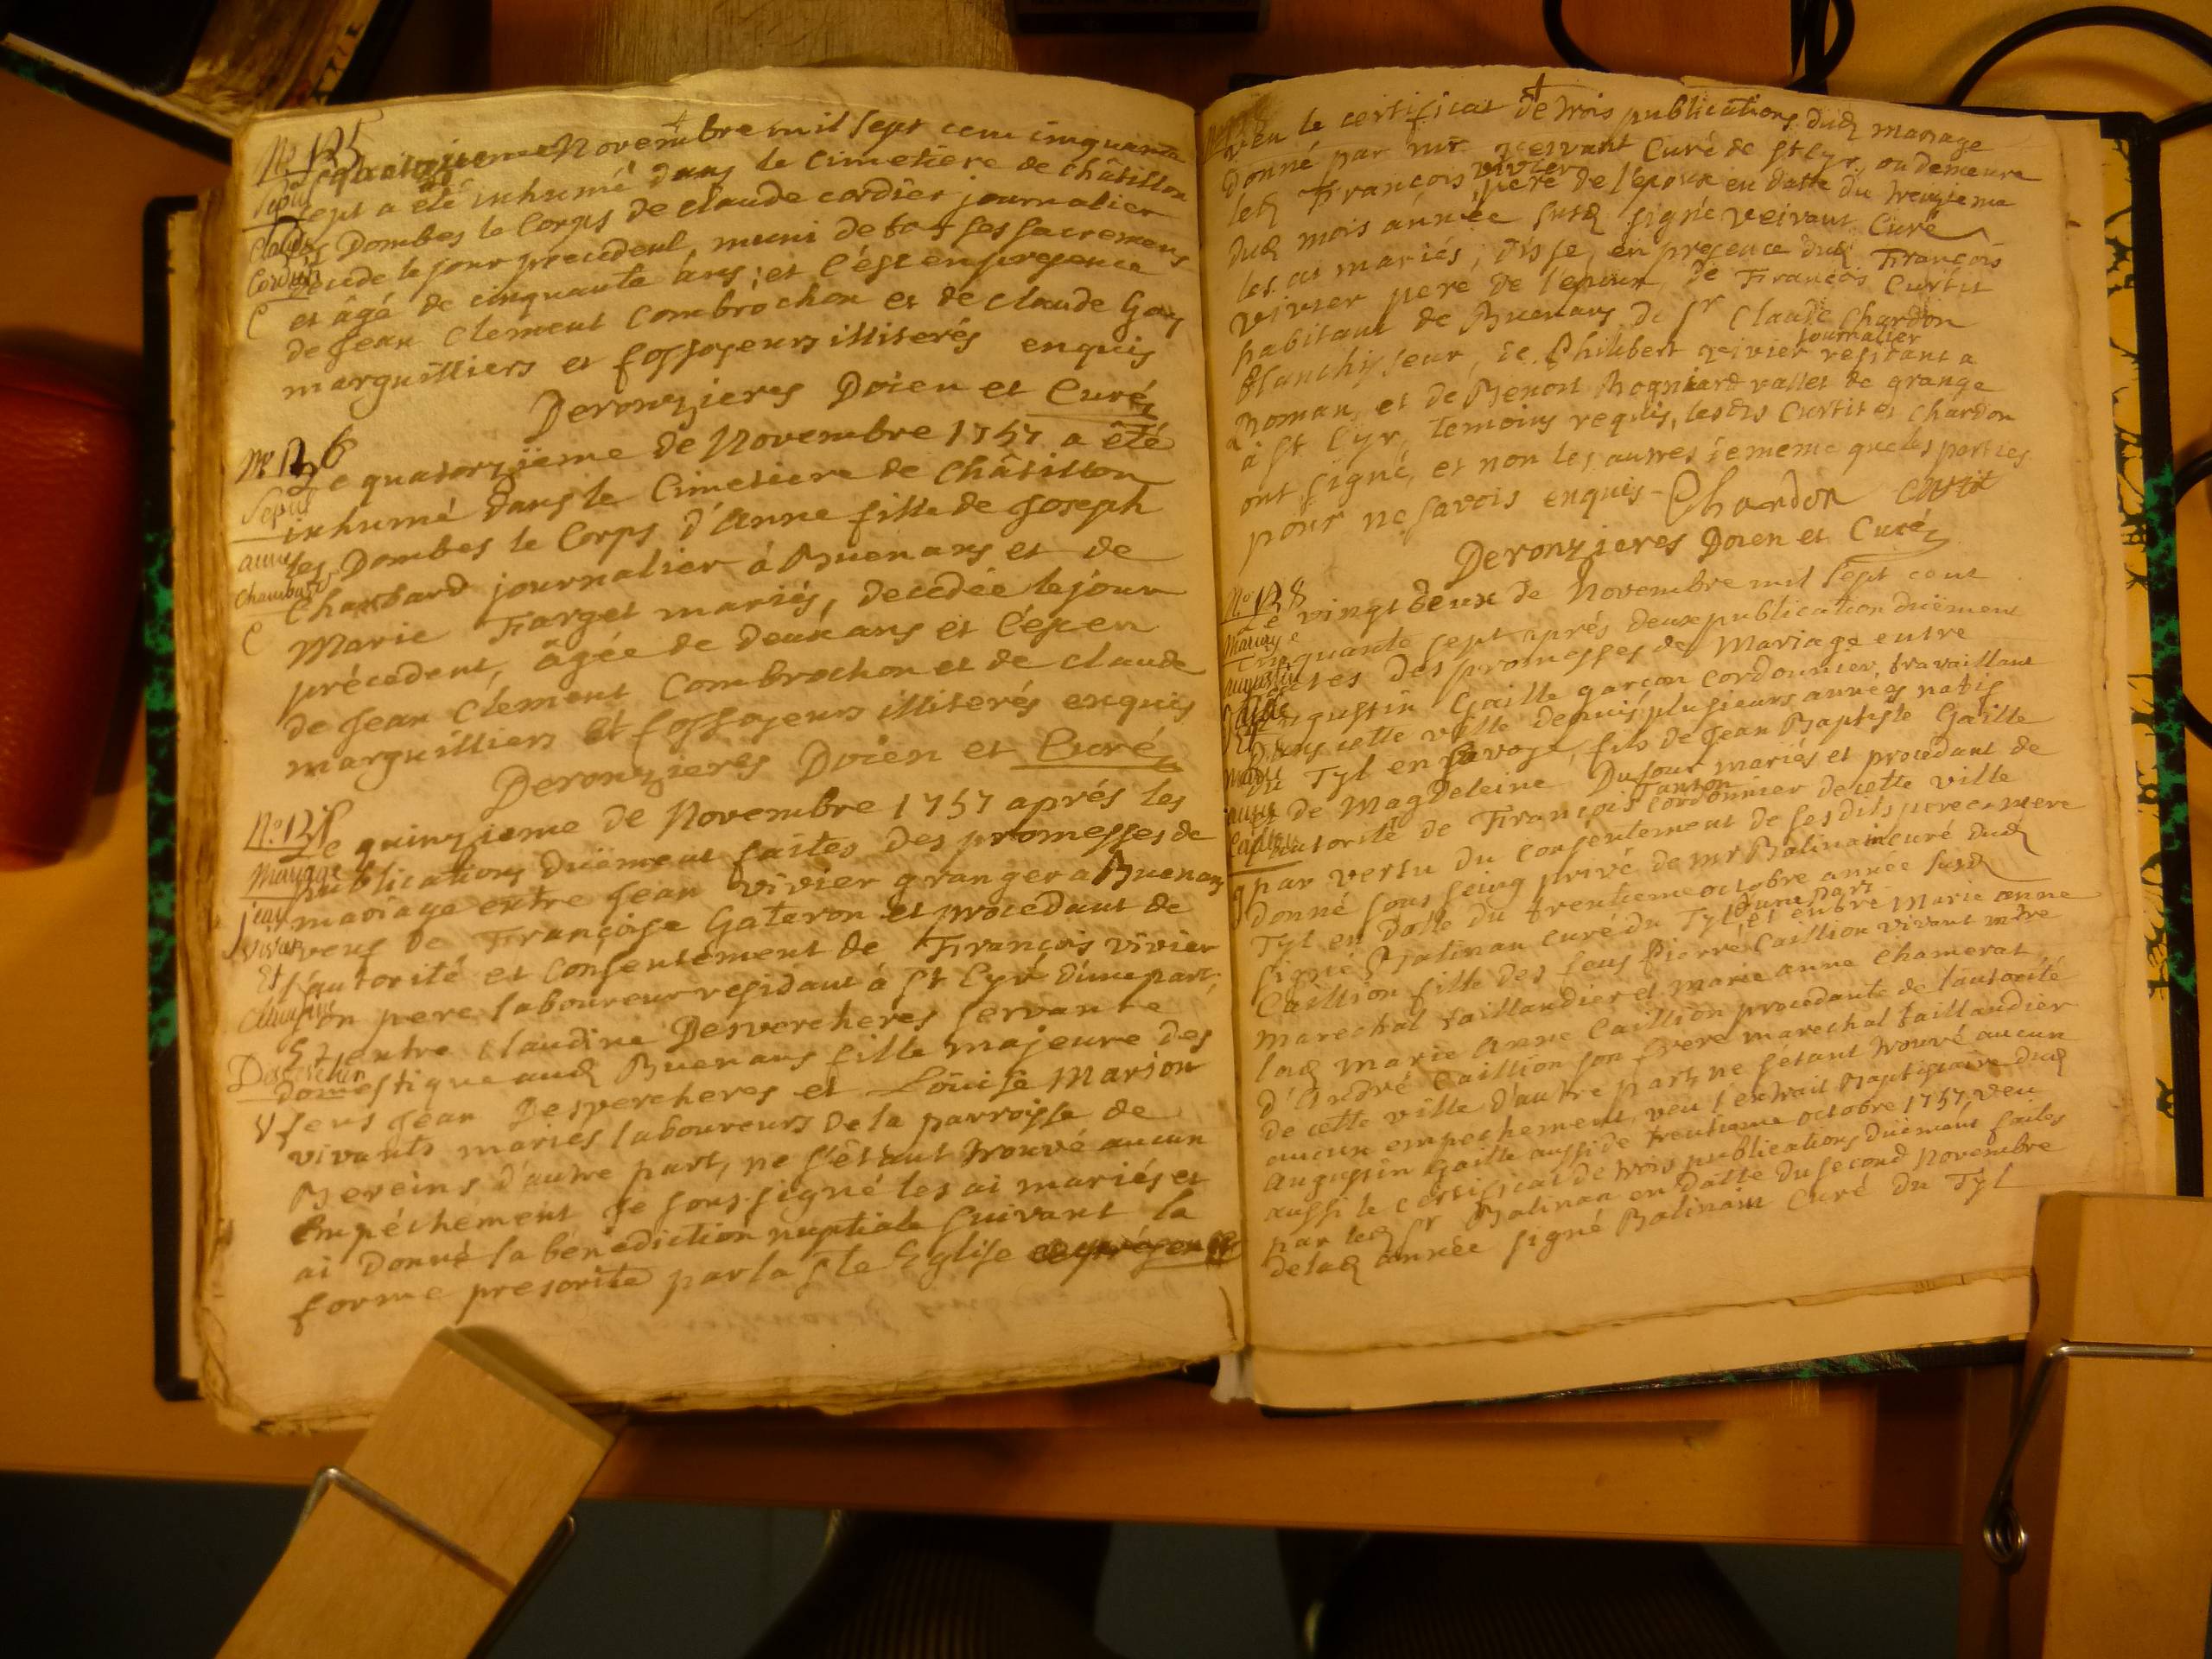 No 125
Le quatorzieme Novembre mil sept cent cinquante
sept a été inhumé dans le Cimetiere de châtillon
les Dombes le Corps de claude cordier journalier
décédé le jour precedent, muni de tous ses sacremens
et âgé de cinquante ans; et c'ést en presence
de Jean Clement Combrochon et de claude Goy
marguilliers et fossoyeurs illiterés enquis
Deronzieres Doien et Curé
No 126
Le quatorzième de Novembre 1757 a été
inhumé dans le Cimetiere de Châtillon
les Dombes le Corps d'Anne fille de Joseph
Chambard journalier à Buenans et de
Marie Farget mariés, decedée le jour
précedent, âgée de deux ans et c'ést en
de Jean Clément Combrochon et de claude
marguilliers et fossoyeurs illiterés enquis
Deronzieres Doien et Curé
No 127
Le quinzieme de Novembre 1757 aprés les
publications duëment faites des promesses de
mariage entre Jean vivier granger a Buenans
veuf de Françoise Gateron et procedant de
l'autorité et Consentement de François vivier
son pere laboureur residant à St Cyr d'une part,
Et entre Claudine Desvercheres servante
domestique aud Buenans fille majeure des
feus Jean Desvercheres et Loüise Marion
vivants mariés laboureurs de la parroisse de
Bereins d'autre part, ne s'étant trouvé aucun
Empéchement Je soussigné les ai mariés et
ai Donné la benediction nuptiale suivant la
forme prescrite par la Ste Eglise
veu le certificat de trois publications dud mariage
donné par mr veivant Curé de St Cyr, ou demeure
led François vivier pere de l'epoux en datte du treizieme
dud mois année susd signé veivant Curé
les ai mariés, disje, en presence dud François
vivier peré de l'epoux, de François Curtit
habitant de Buenans de Sr Claude Chardon
blanchisseur, de Philibert vivier journalier residant a
Roman, et de Benoit Rogniard vallet de grange
à St Cyr, temoins requis, lesdts Curtit et Chardon
ont signé, et non les autres de meme que les parties
pour ne savoir enquis - Chardon Curtit
Deronzieres Doien et Curé
No 128
Le vingt deux de Novembre mil sept cent
Cinquante sept aprés deux publication duëment
faites des promesses de Mariage entre
Augustin Gaille garçon cordonnier travaillant
dans cette ville depuis plusieurs années natif
du Tyl en savoye, fils de Jean Baptiste Gaille
et de Magdeleine Dufour mariés et procedant de
l'autorité de François cordonnier de cette ville
par vertu du consentement de ses dits pere et mere
donné sous seing privé de mr Balinain curé dud
Tyl en datte du trentieme octobre année susd
signé Balinain curé du Tyl d'une part, et entre Marie anne
Caillion fille des feus Pierre Caillion vivant mtre
marechal taillandier et marie anne chamerat
lad marie Anne Caillion procedante de l'autorité
d'André Caillion son frere marechal taillandier
de cette ville d'autre part, ne s'etant trouvé aucun
aucun empechement, veu l'extrait Baptistaire dud
Augustin Gaille aussi de trentieme octobre 1757 veu
aussi le certificat de trois publications duëment faites
par led Sr Balinain en datte du second novembre
de lad année signé Balinain Curé du Tyl